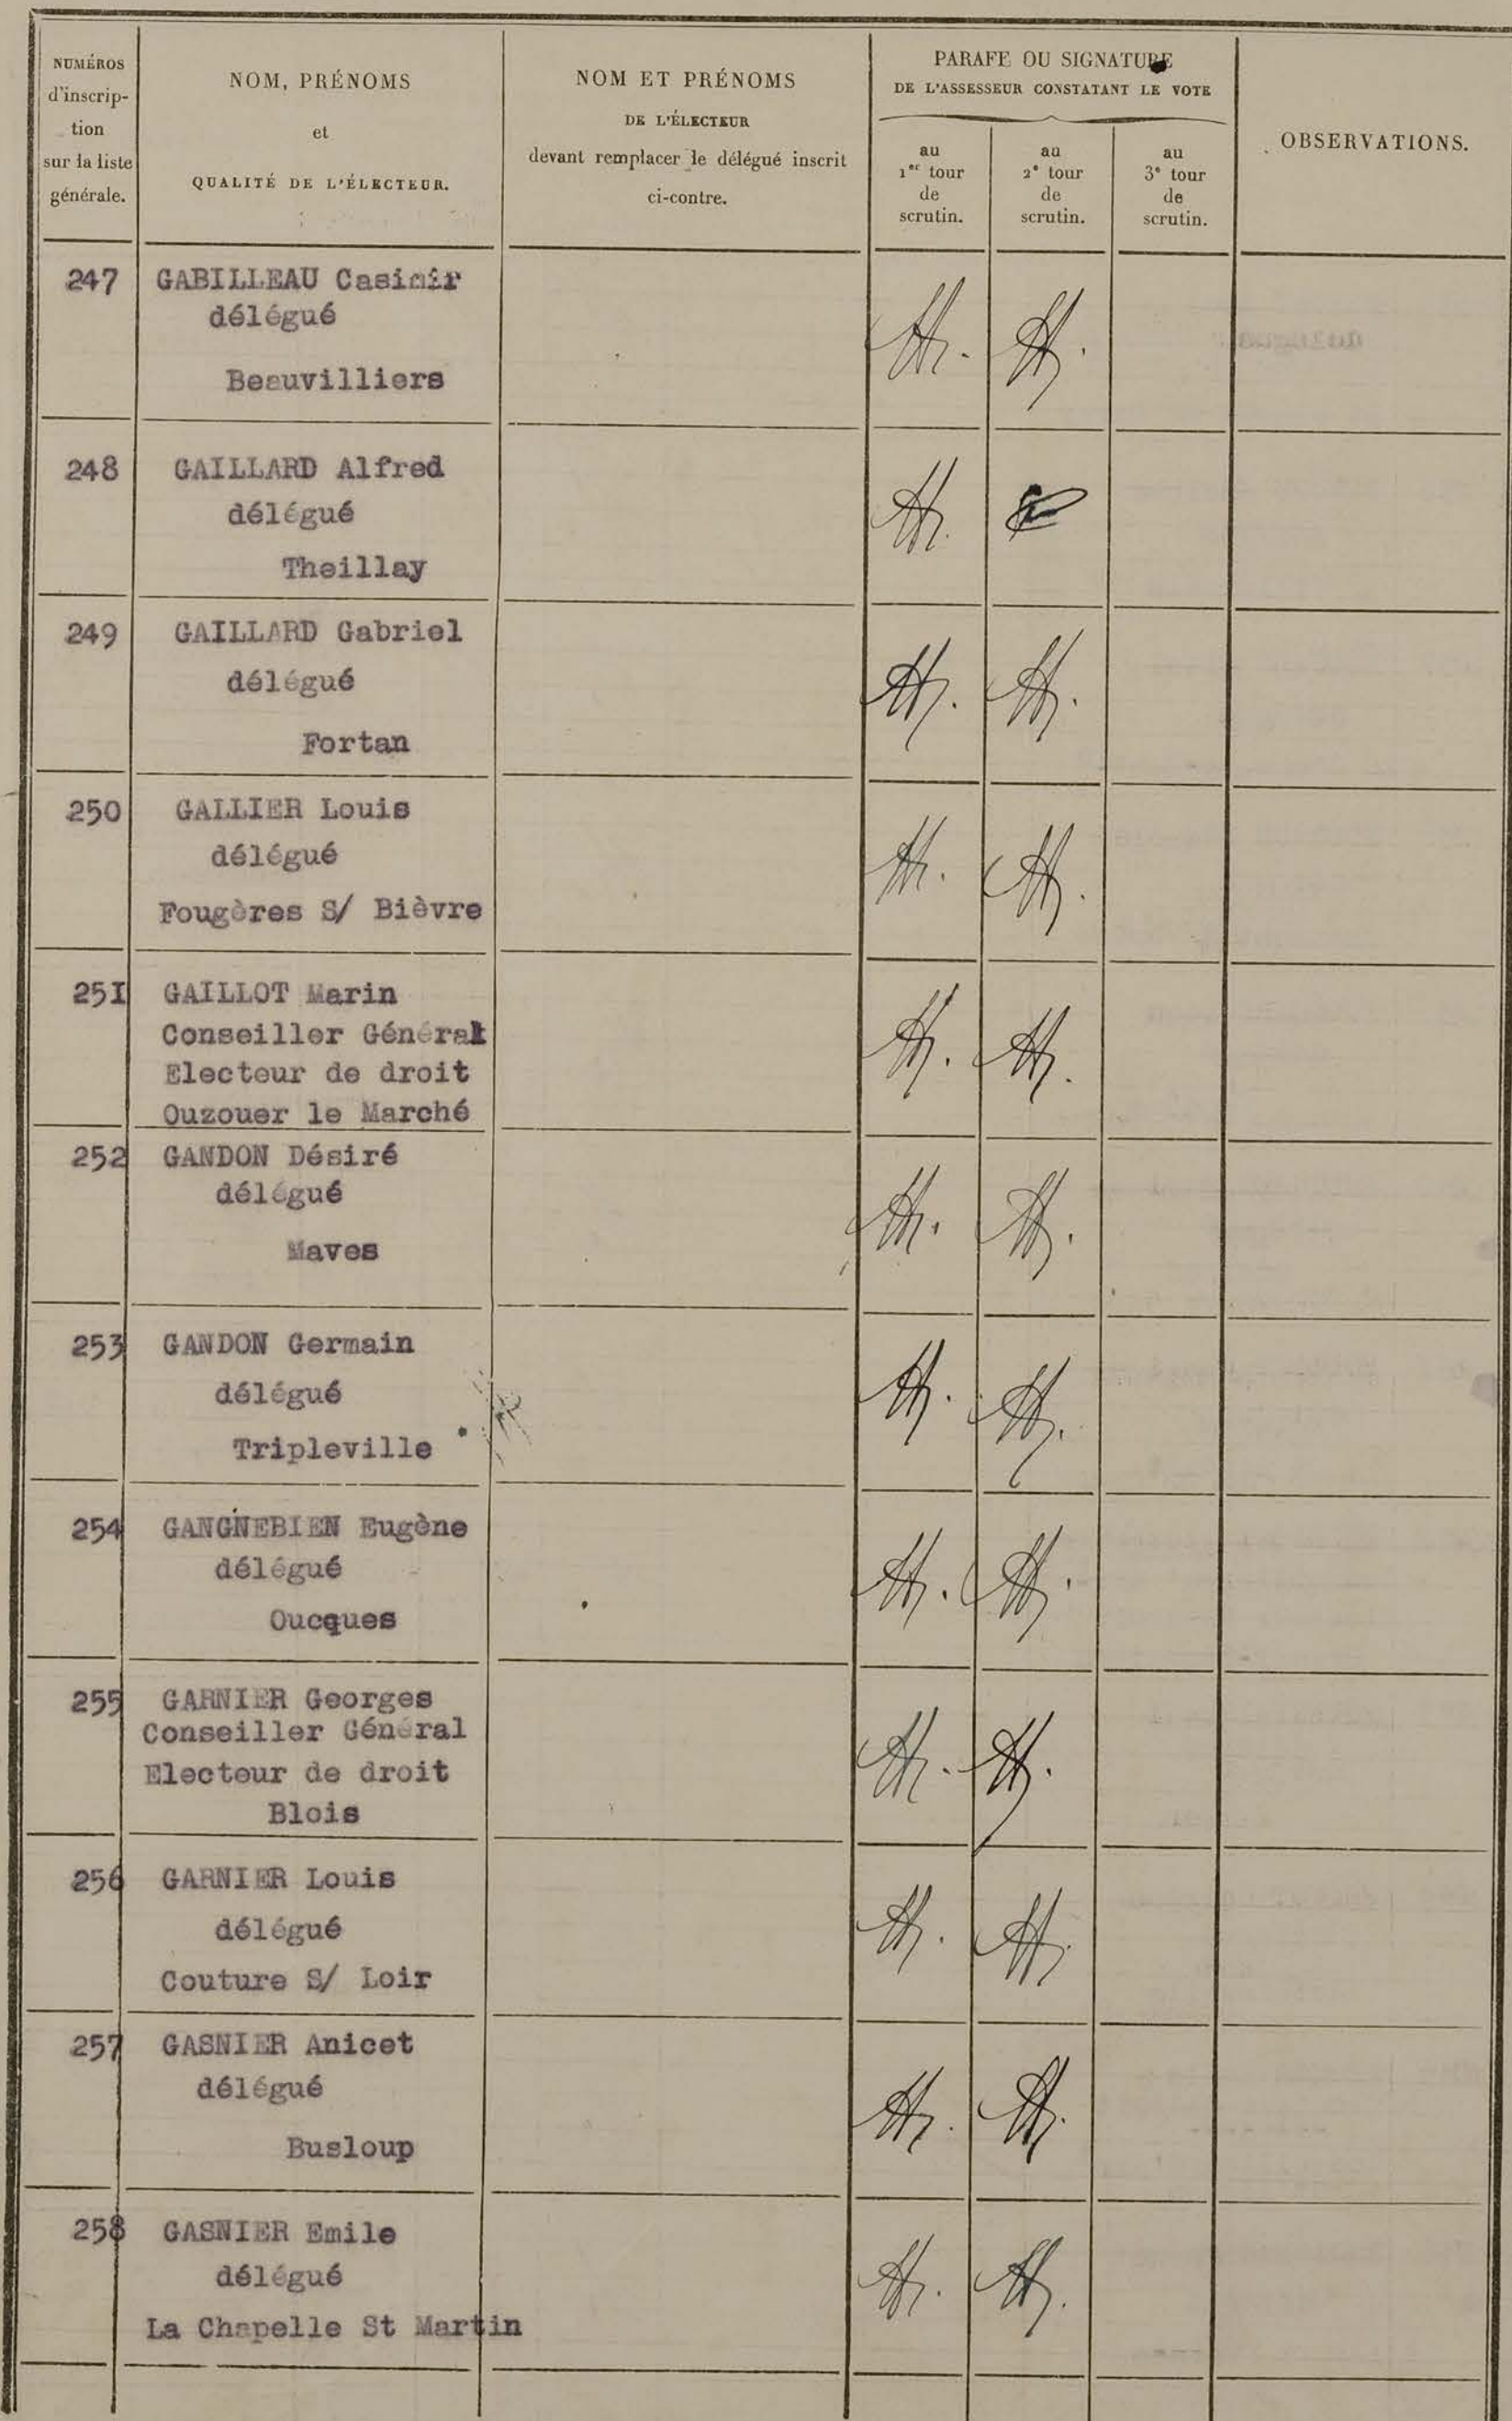 NUMÉROS
d'inscrip-
tion
sur la liste
générale.
NOM, PRÉNOMS
et
QUALITÉ DE L'ÉLECTEUR.
NOM ET PRÉNOMS
DE L'ÉLECTEUR
devant remplacer le délégué inscrit
ci-contre.
PARAFE OU SIGNATURE
DE L'ASSESSEUR CONSTATANT LE VOTE
au
1er tour
de
scrutin.
au
2e tour
de
scrutin.
au
3e tour
de
scrutin.
OBSERVATIONS.
247 GABILLEAU Casimir
délégué
Beauvilliers
248 GAILLARD Alfred
délégué
Theillay
249 GAILLARD Gabriel
délégué
Fortan
250 GALLIER Louis
délégué
Fougères S/ Bièvre
251 GAILLOT Marin
Conseiller Général
Electeur de droit
Ouzouer le Marché
252 GANDON Désiré
délégué
Maves
253 GANDON Germain
délégué
Tripleville
254 GANGNEBIEN Eugène
délégué
Oucques
255 GARNIER Georges
Conseiller Général
Electeur de droit
Blois
256 GARNIER Louis
délégué
Couture S/ Loir
257 GASNIER Anicet
délégué
Busloup
258 GASNIER Emile
délégué
La Chapelle St Martin